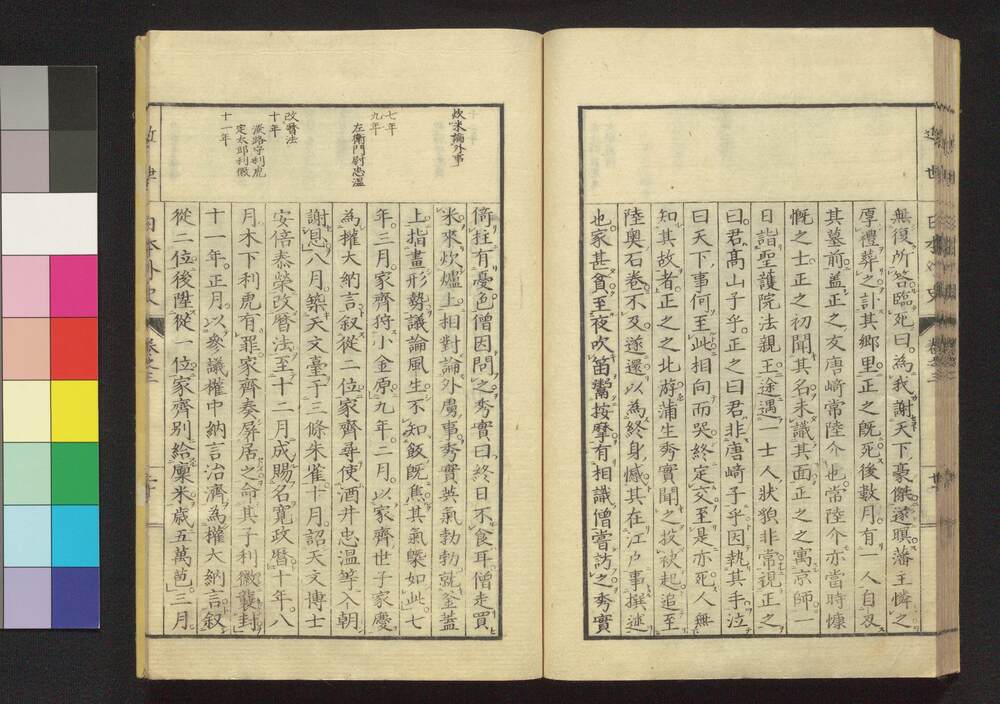 無復所答臨死曰為我謝天下豪傑遂瞑藩王憐之
厚禮葬之訃其鄉里正之既死後數月有一人自殺
其墓前蓋正之友唐崎常陸介也常陸介亦當時慷
慨之士正之初聞其名未識其面正之之寓京師一
日詣聖護院法親王途遇一士人狀貌非常視正之
曰君髙山子乎正之曰君非唐崎子乎因執其手泣
曰天下事何至此相向而哭終定交至是亦死人無
知其故者正之之北游蒲生秀實聞之投袂起追至
陸奧石卷不及遂還以為終身憾其在江戶事撰述
也家甚貧至夜吹笛鬻按摩有相識僧嘗訪之秀實
倚柱有憂色僧因問之秀實曰終日不食耳僧走買
米來炊爐上相對論外虜事秀實英氣勃勃就釜蓋
上指畫形勢議論風生不知飯既焦其氣槩如此七
年三月家齊狩小金原九年二月以家齊世子家慶
為權大納言叙從二位家齊尋使酒井忠溫等入朝
謝恩八月築天文臺于三條朱雀十月詔天文博士
安倍泰榮改曆法至十二月成賜名寬政曆十年八
月木下利虎有罪家齊奏屏居之命其子利徽襲封
十一年正月以參議權中納言治濟為權大納言叙
從二位後陞從一位家齊別給廩米歲五萬苞三月
炊米論外事
七年
九年
左衛門尉忠溫
改曆法
十年
淡路守利虎
定太郎利徽
十一年
日本外史
卷之三
近世
日本外史
卷之三